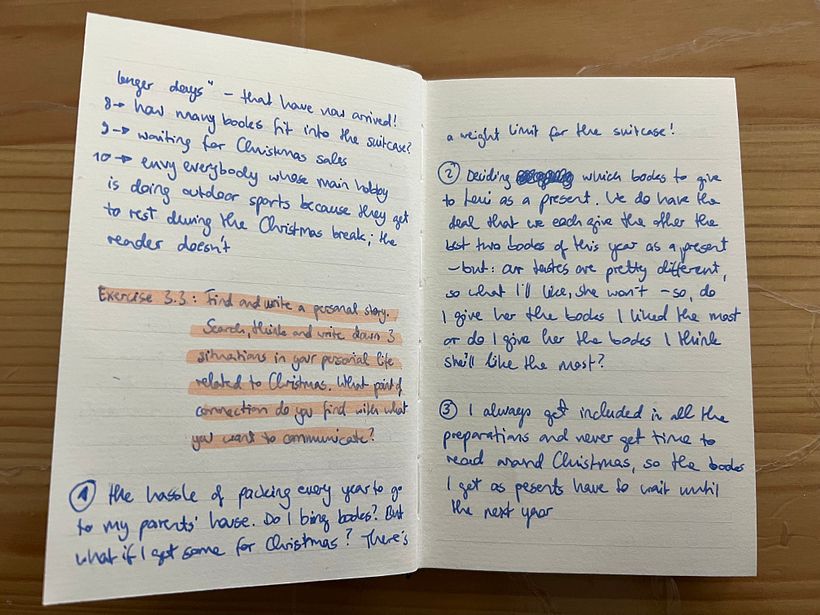 longer days" – that have now arrived!
8 → how many books fit into the suitcase?
9 → waiting for Christmas sales
10 → envy everybody whose main hobby
is doing outdoor sports because they get
to rest during the Christmas break; the
reader doesn't
Exercise 3.3: Find and write a personal story.
Search, think and write down 3
situations in your personal life
related to Christmas. What point of
connection do you find with what
you want to communicate?
① the hassle of packing every year to go
to my parents' house. Do I bing books? But
what if I get some for Christmas? There's
a weight limit for the suitcase!
② Deciding which books to give
to Leni as a present. We do have the
deal that we each give the other the
best two books of this year as a present
– but: our tastes are pretty different,
so what I'll like, she won't – so, do
I give her the books I liked the most
or do I give her the books I think
she'll like the most?
③ I always get included in all the
preparations and never get time to
read around Christmas, so the books
I get as pesents have to wait until
the next year